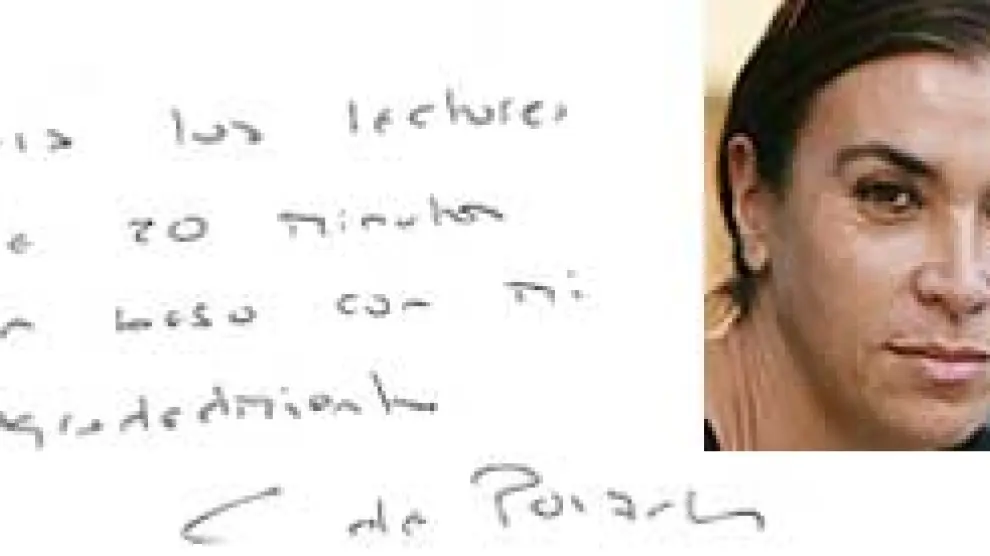 los lectores
20 minutos
beso con mi
agradecimiento
C de